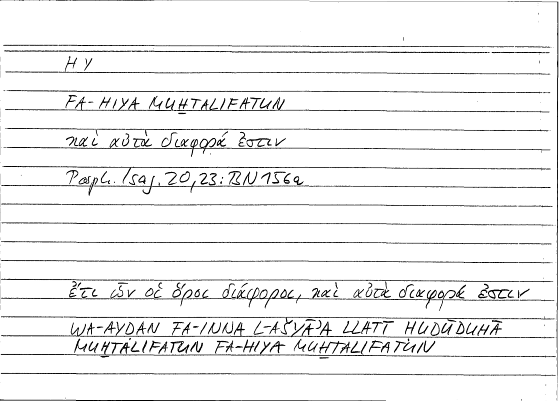 HY
FA-HIYA MUḪTALIFATUN
καὶ αὐτὰ διαφορά ἐστιν
Porph. Isag. 20,23: BN 156a
ἔτι ὧν οἱ ὅροι διάφοροι, καὶ αὐτὰ διαφορά ἐστιν
WA-AYḌAN FA-INNA L-AŠYĀʾA LLATĪ ḤUDŪDUHĀ
MUḪTALIFATUN FA-HIYA MUḪTALIFATUN